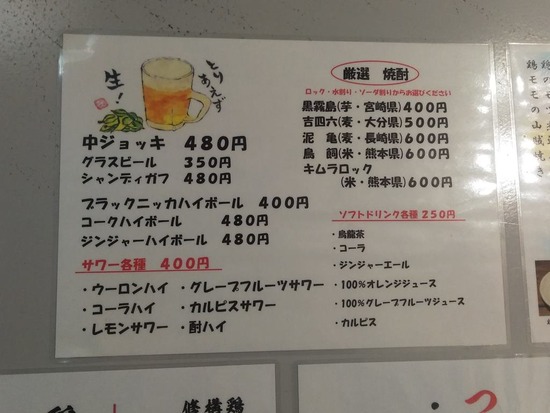 とりあえず
生!
中ジョッキ 480円
グラスビール 350円
シャンディガフ 480円
ブラックニッカハイボール 400円
コークハイボール 480円
ジンジャーハイボール 480円
サワー各種 400円
・ウーロンハイ ・グレープフルーツサワー
・コーラハイ ・カルピスサワー
・レモンサワー ・酎ハイ
厳選 焼酎
ロック・水割り・ソーダ割りからお選びください
黒霧島(芋・宮崎県)400円
吉四六(麦・大分県)500円
泥 亀(麦・長崎県)600円
鳥 飼(米・熊本県)600円
キムラロック
(米・熊本県)600円
ソフトドリンク各種250円
・烏龍茶
・コーラ
・ジンジャーエール
・100%オレンジジュース
・100%グレープフルーツジュース
・カルピス
鶏モモの山賊焼き